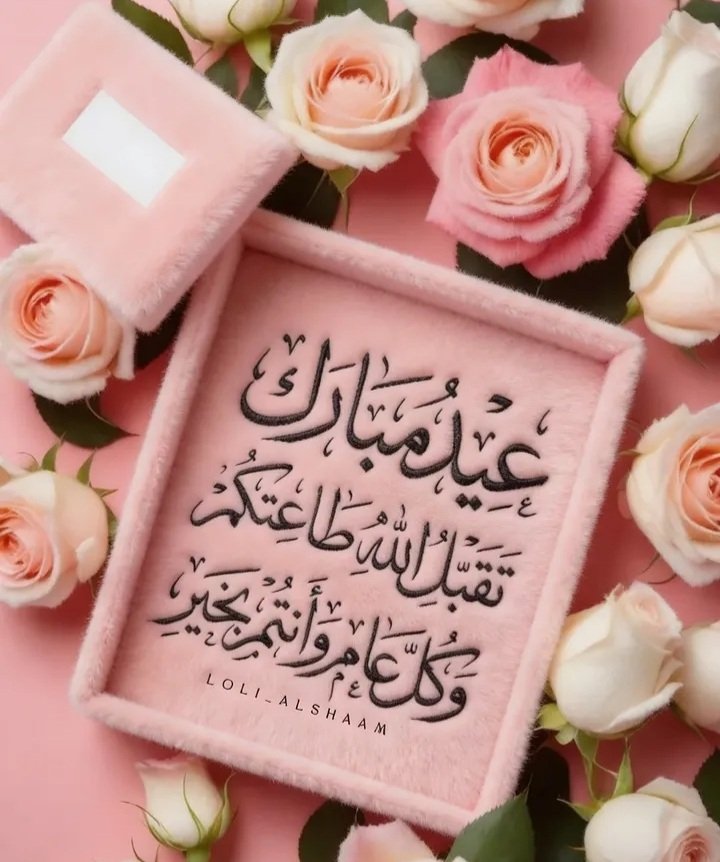 عِيدُ مُبَارَك
تَقَبَّلَ اللهُ طَاعِتَكُمْ
وَكُلَّ عَامٍ وَأَنتُمْ بِخَيرٍ
LOLI_ALSHAAM